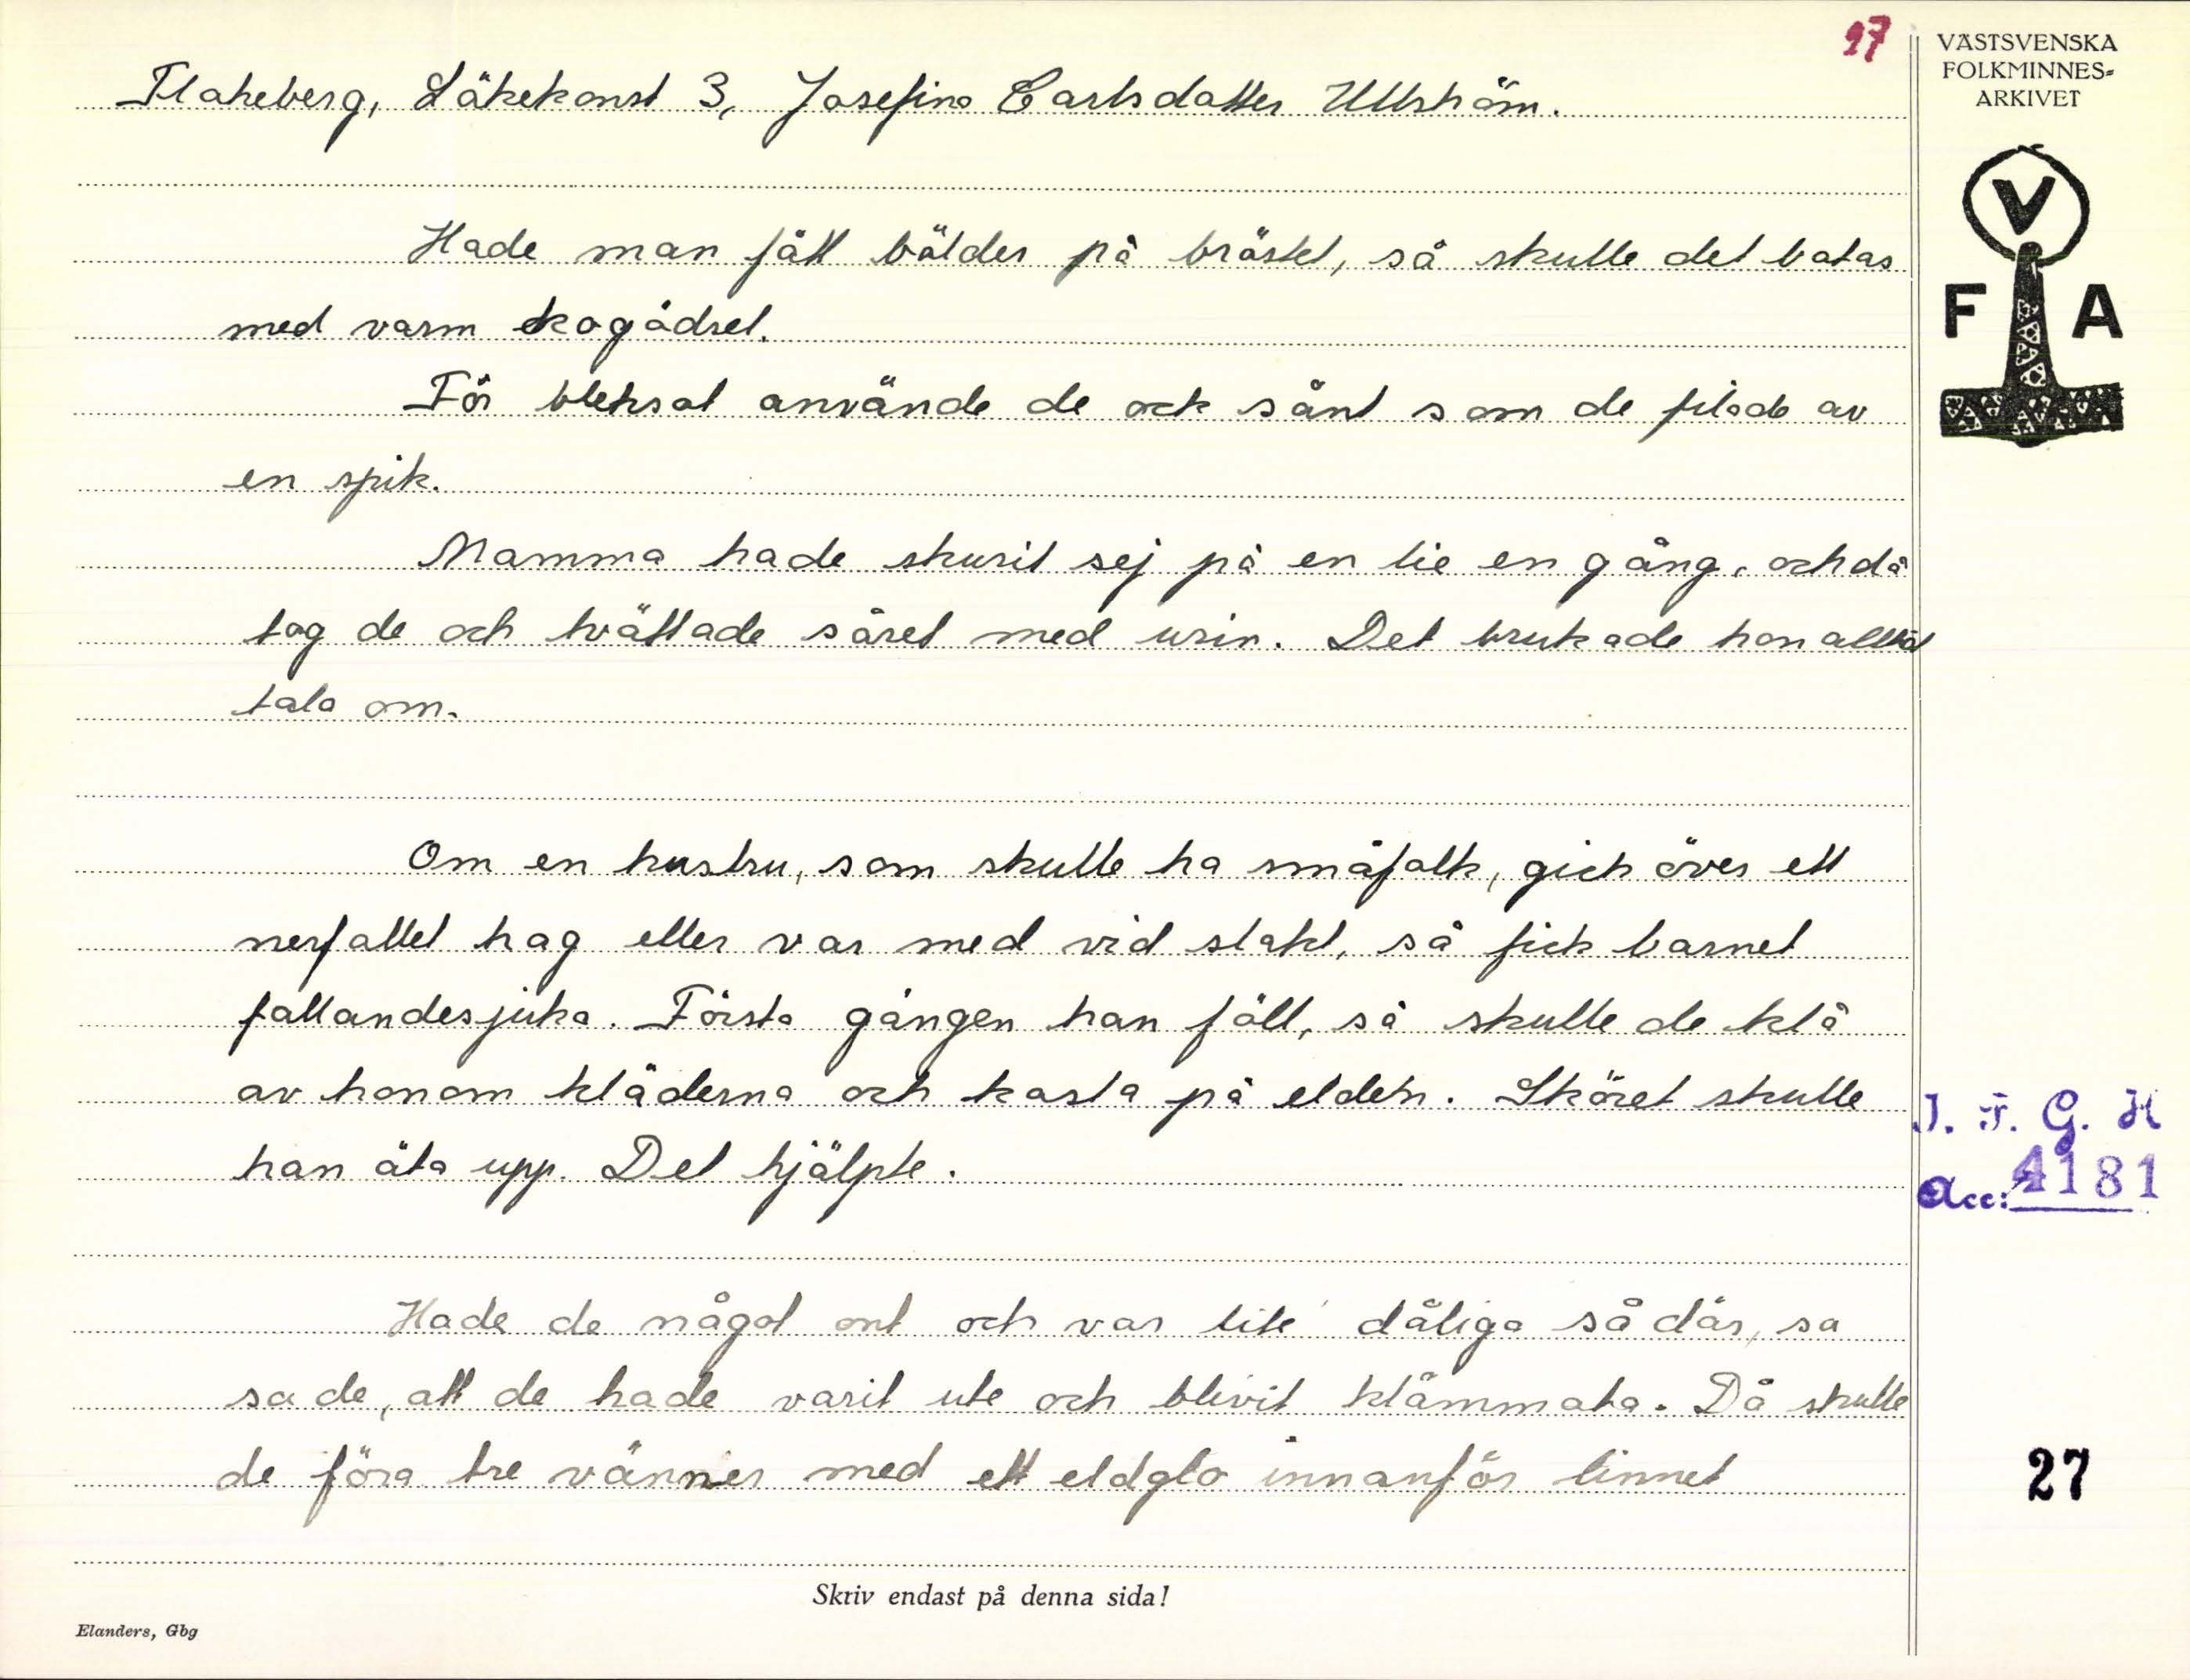 27
VÄSTSVENSKA
FOLKMINNES-
ARKIVET
Flakeberg, Läkekonst 3, Josefina Carlsdotter Ullström.
V
F A
Hade man fått bölder på bröstet, så skulle det botas
med varm kogödsel.
För bleksot använde de ock sånt som de filade av
en spik.
Mamma hade skurit sej på en lie en gång, och då
tog de och tvättade såret med urin. Det brukade hon alltid
tala om.
Om en hustru, som skulle ha småfolk, gick över ett
nerfallet hag eller var med vid slakt, så fick barnet
fallandesjuka. Första gången han föll, så skulle de klä
av honom kläderna och kasta på elden. Sköret skulle
han äta upp. Det hjälpte.
I. F. G. H
Acc: 4181
Hade de något ont och var lite dåliga så där, sa
sa de, att de hade varit ute och blivit klämmata. Då skulle
de föra tre vänner med ett eldglo innanför linnet
27
Skriv endast på denna sida!
Elanders, Gbg